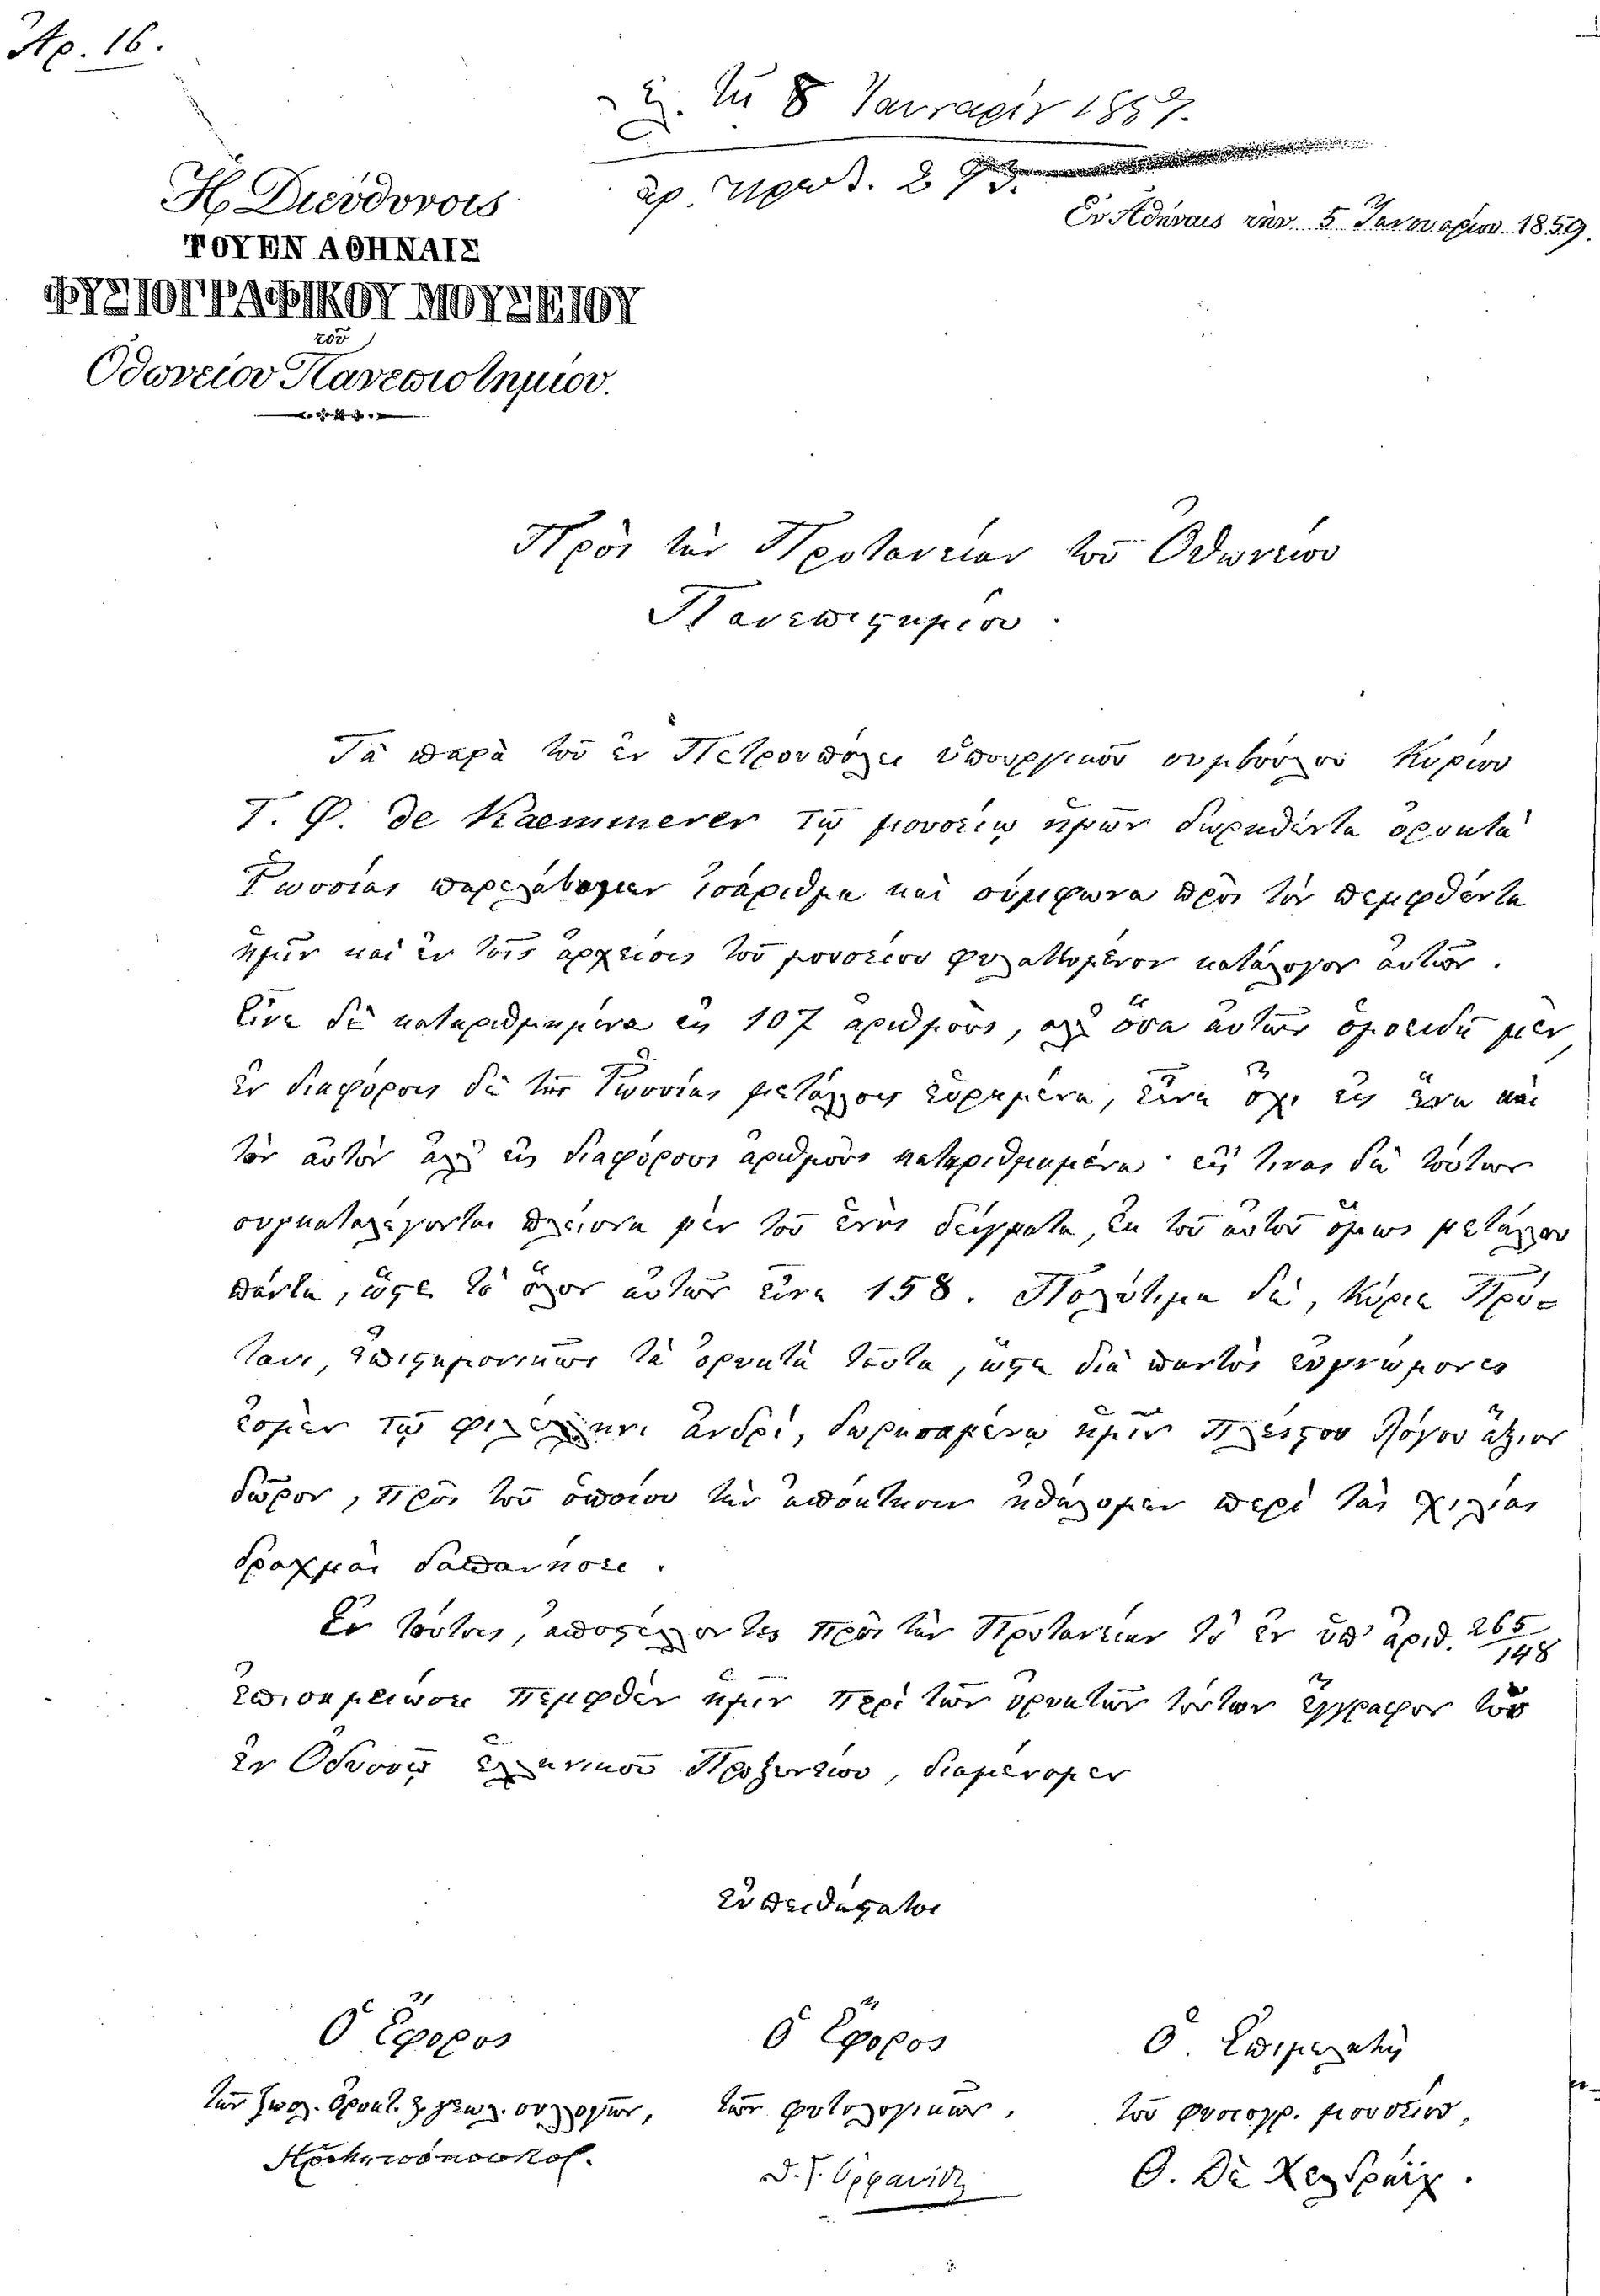 Ἀρ. 16.
τῇ 8 Ἰανουαρίου 1859.
ἀρ. πρωτ. 293.
Ἐν Ἀθήναις τὴν 5 Ἰανουαρίου 1859.
Ἡ Διεύθυνσις
ΤΟΥ ΕΝ ΑΘΗΝΑΙΣ
ΦΥΣΙΟΓΡΑΦΙΚΟΥ ΜΟΥΣΕΙΟΥ
τοῦ
Ὀθωνείου Πανεπιστημίου.
Πρὸς τὴν Πρυτανείαν τοῦ Ὀθωνείου
Πανεπιστημίου.
Τὰ παρὰ τοῦ ἐν Πετρουπόλει ὑπουργικοῦ συμβούλου Κυρίου
Τ. Φ. de Kaemmerer τῷ μουσείῳ ἡμῶν δωρηθέντα ὀρυκτὰ
Ῥωσσίας παρελάβομεν ἰσάριθμα καὶ σύμφωνα πρὸς τὸν πεμφθέντα
ἡμῖν καὶ ἐν τοῖς ἀρχείοις τοῦ μουσείου φυλαττόμενον κατάλογον αὐτῶν.
Εἶνε δὲ κατηριθμημένα εἰς 107 ἀριθμοὺς, ἀλλ' ὅσα αὐτῶν ὁμοειδῆ μὲν,
ἐν διαφόροις δὲ τῆς Ῥωσσίας μετάλλοις εὑρημένα, εἶνε ὄχι εἰς ἕνα καὶ
τὸν αὐτὸν ἀλλ' εἰς διαφόρους ἀριθμοὺς κατηριθμημένα· εἴς τινας δὲ τούτων
συγκαταλέγονται πλείονα μὲν τοῦ ἑνὸς δείγματα, ἐκ τοῦ αὐτοῦ ὅμως μετάλλου
πάντα, ὥστε τὸ ὅλον αὐτῶν εἶνε 158. Πολύτιμα δὲ, Κύριε Πρύ-
τανι, ἐπιστημονικῶς τὰ ὀρυκτὰ ταῦτα, ὥστε διὰ παντὸς εὐγνώμονες
ἐσμὲν τῷ φιλέλληνι ἀνδρὶ, δωρησαμένῳ ἡμῖν πλείστου λόγου ἄξιον
δῶρον, πρὸς τοῦ ὁποίου τὴν ἀπόκτησιν ἠθέλομεν περὶ τὰς χιλίας
δραχμὰς δαπανήσει.
Ἐν τούτοις, ἀποστέλλοντες πρὸς τὴν Πρυτανείαν τὸ ἐν ὑπ' ἀριθ. 265/148
ἐπισημειώσει πεμφθὲν ἡμῖν περὶ τῶν ὀρυκτῶν τούτων ἔγγραφον τοῦ
ἐν Ὀδησσῷ ἑλληνικοῦ Προξενείου, διαμένομεν
εὐπειθέστατοι
Ὁ Ἔφορος
τῶν ζωολ. ὀρυκτ. & γεωλ. συλλογῶν,
Ὁ Ἔφορος
τῶν φυτολογικῶν,
Ὁ Ἐπιμελητὴς
τοῦ φυσιογρ. μουσείου,
Θ. Δὲ Χελδράιχ.